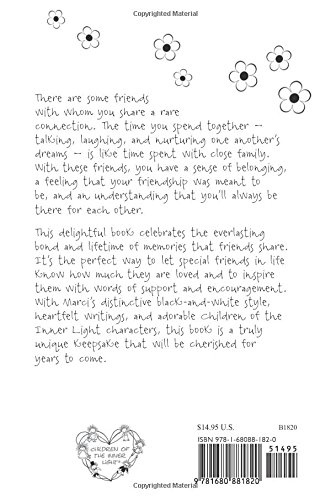 Copyrighted Material
There are some friends
with whom you share a rare
connection. The time you spend together --
talking, laughing, and nurturing one another's
dreams -- is like time spent with close family.
With these friends, you have a sense of belonging,
a feeling that your friendship was meant to
be, and an understanding that you'll always be
there for each other.
This delightful book celebrates the everlasting
bond and lifetime of memories that friends share.
It's the perfect way to let special friends in life
know how much they are loved and to inspire
them with words of support and encouragement.
With Marci's distinctive black-and-white style,
heartfelt writings, and adorable Children of the
Inner Light characters, this book is a truly
unique keepsake that will be cherished for
years to come.
CHILDREN
OF THE INNER
LIGHT
$14.95 U.S. B1820
ISBN 978-1-68088-182-0
51495
9781680881820
Copyrighted Material